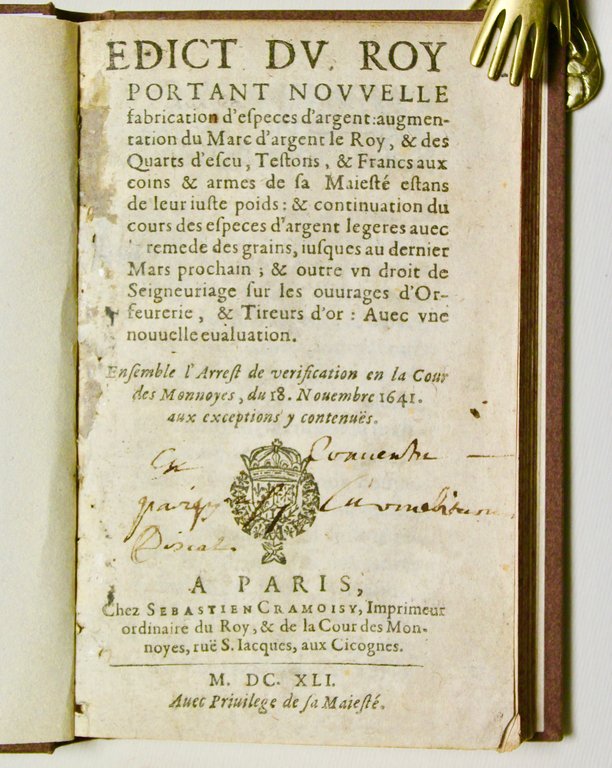 EDICT DV ROY
PORTANT NOVVELLE
fabrication d'especes d'argent: augmen-
tation du Marc d'argent le Roy, & des
Quarts d'escu, Testons, & Francs aux
coins & armes de sa Maiesté estans
de leur iuste poids: & continuation du
cours des especes d'argent legeres auec
remede des grains, iusques au dernier
Mars prochain; & outre vn droit de
Seigneuriage sur les ouurages d'Or-
feurerie, & Tireurs d'or: Auec vne
nouuelle eualuation.
Ensemble l'Arrest de verification en la Cour
des Monnoyes, du 18. Nouembre 1641.
aux exceptions y contenuës.
Conuentu
A PARIS,
Chez SEBASTIEN CRAMOISY, Imprimeur
ordinaire du Roy, & de la Cour des Mon-
noyes, ruë S. Iacques, aux Cicognes.
M. DC. XLI.
Auec Priuilege de sa Maiesté.